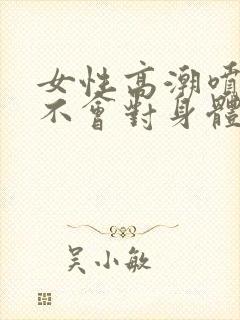 女性高潮噴
不會對身體
吳小敏